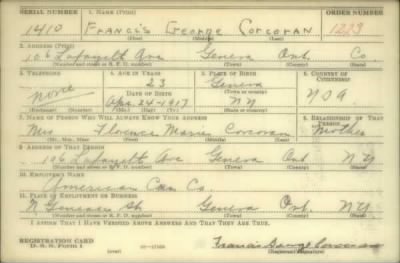 SERIAL NUMBER 1. NAME (Print) ORDER NUMBER
1410 Francis George Corcoran 1223
(First) (Middle) (Last)
2. ADDRESS (Print)
106 Lafayette Ave Geneva Ont. Co.
(Number and street or R. F. D. number) (Town) (County) (State)
3. TELEPHONE 4. AGE IN YEARS 5. PLACE OF BIRTH 6. COUNTRY OF CITIZENSHIP
none 23 Geneva
DATE OF BIRTH (Town or county)
Apr. 24-1917 N Y
(Exchange) (Number) (Mo.) (Day) (Yr.) (State or country)
7. NAME OF PERSON WHO WILL ALWAYS KNOW YOUR ADDRESS 8. RELATIONSHIP OF THAT PERSON
Mrs Florence Marie Corcoran Mother
(Mr., Mrs., Miss) (First) (Middle) (Last)
9. ADDRESS OF THAT PERSON
106 Lafayette Ave Geneva Ont N Y
(Number and street or R. F. D. number) (Town) (County) (State)
10. EMPLOYER'S NAME
American Can Co.
11. PLACE OF EMPLOYMENT OR BUSINESS
N. Genesee St Geneva Ont. N Y
(Number and street or R. F. D. number) (Town) (County) (State)
I AFFIRM THAT I HAVE VERIFIED ABOVE ANSWERS AND THAT THEY ARE TRUE.
REGISTRATION CARD
D. S. S. FORM 1
(over) Francis George Corcoran
(Registrant's signature)